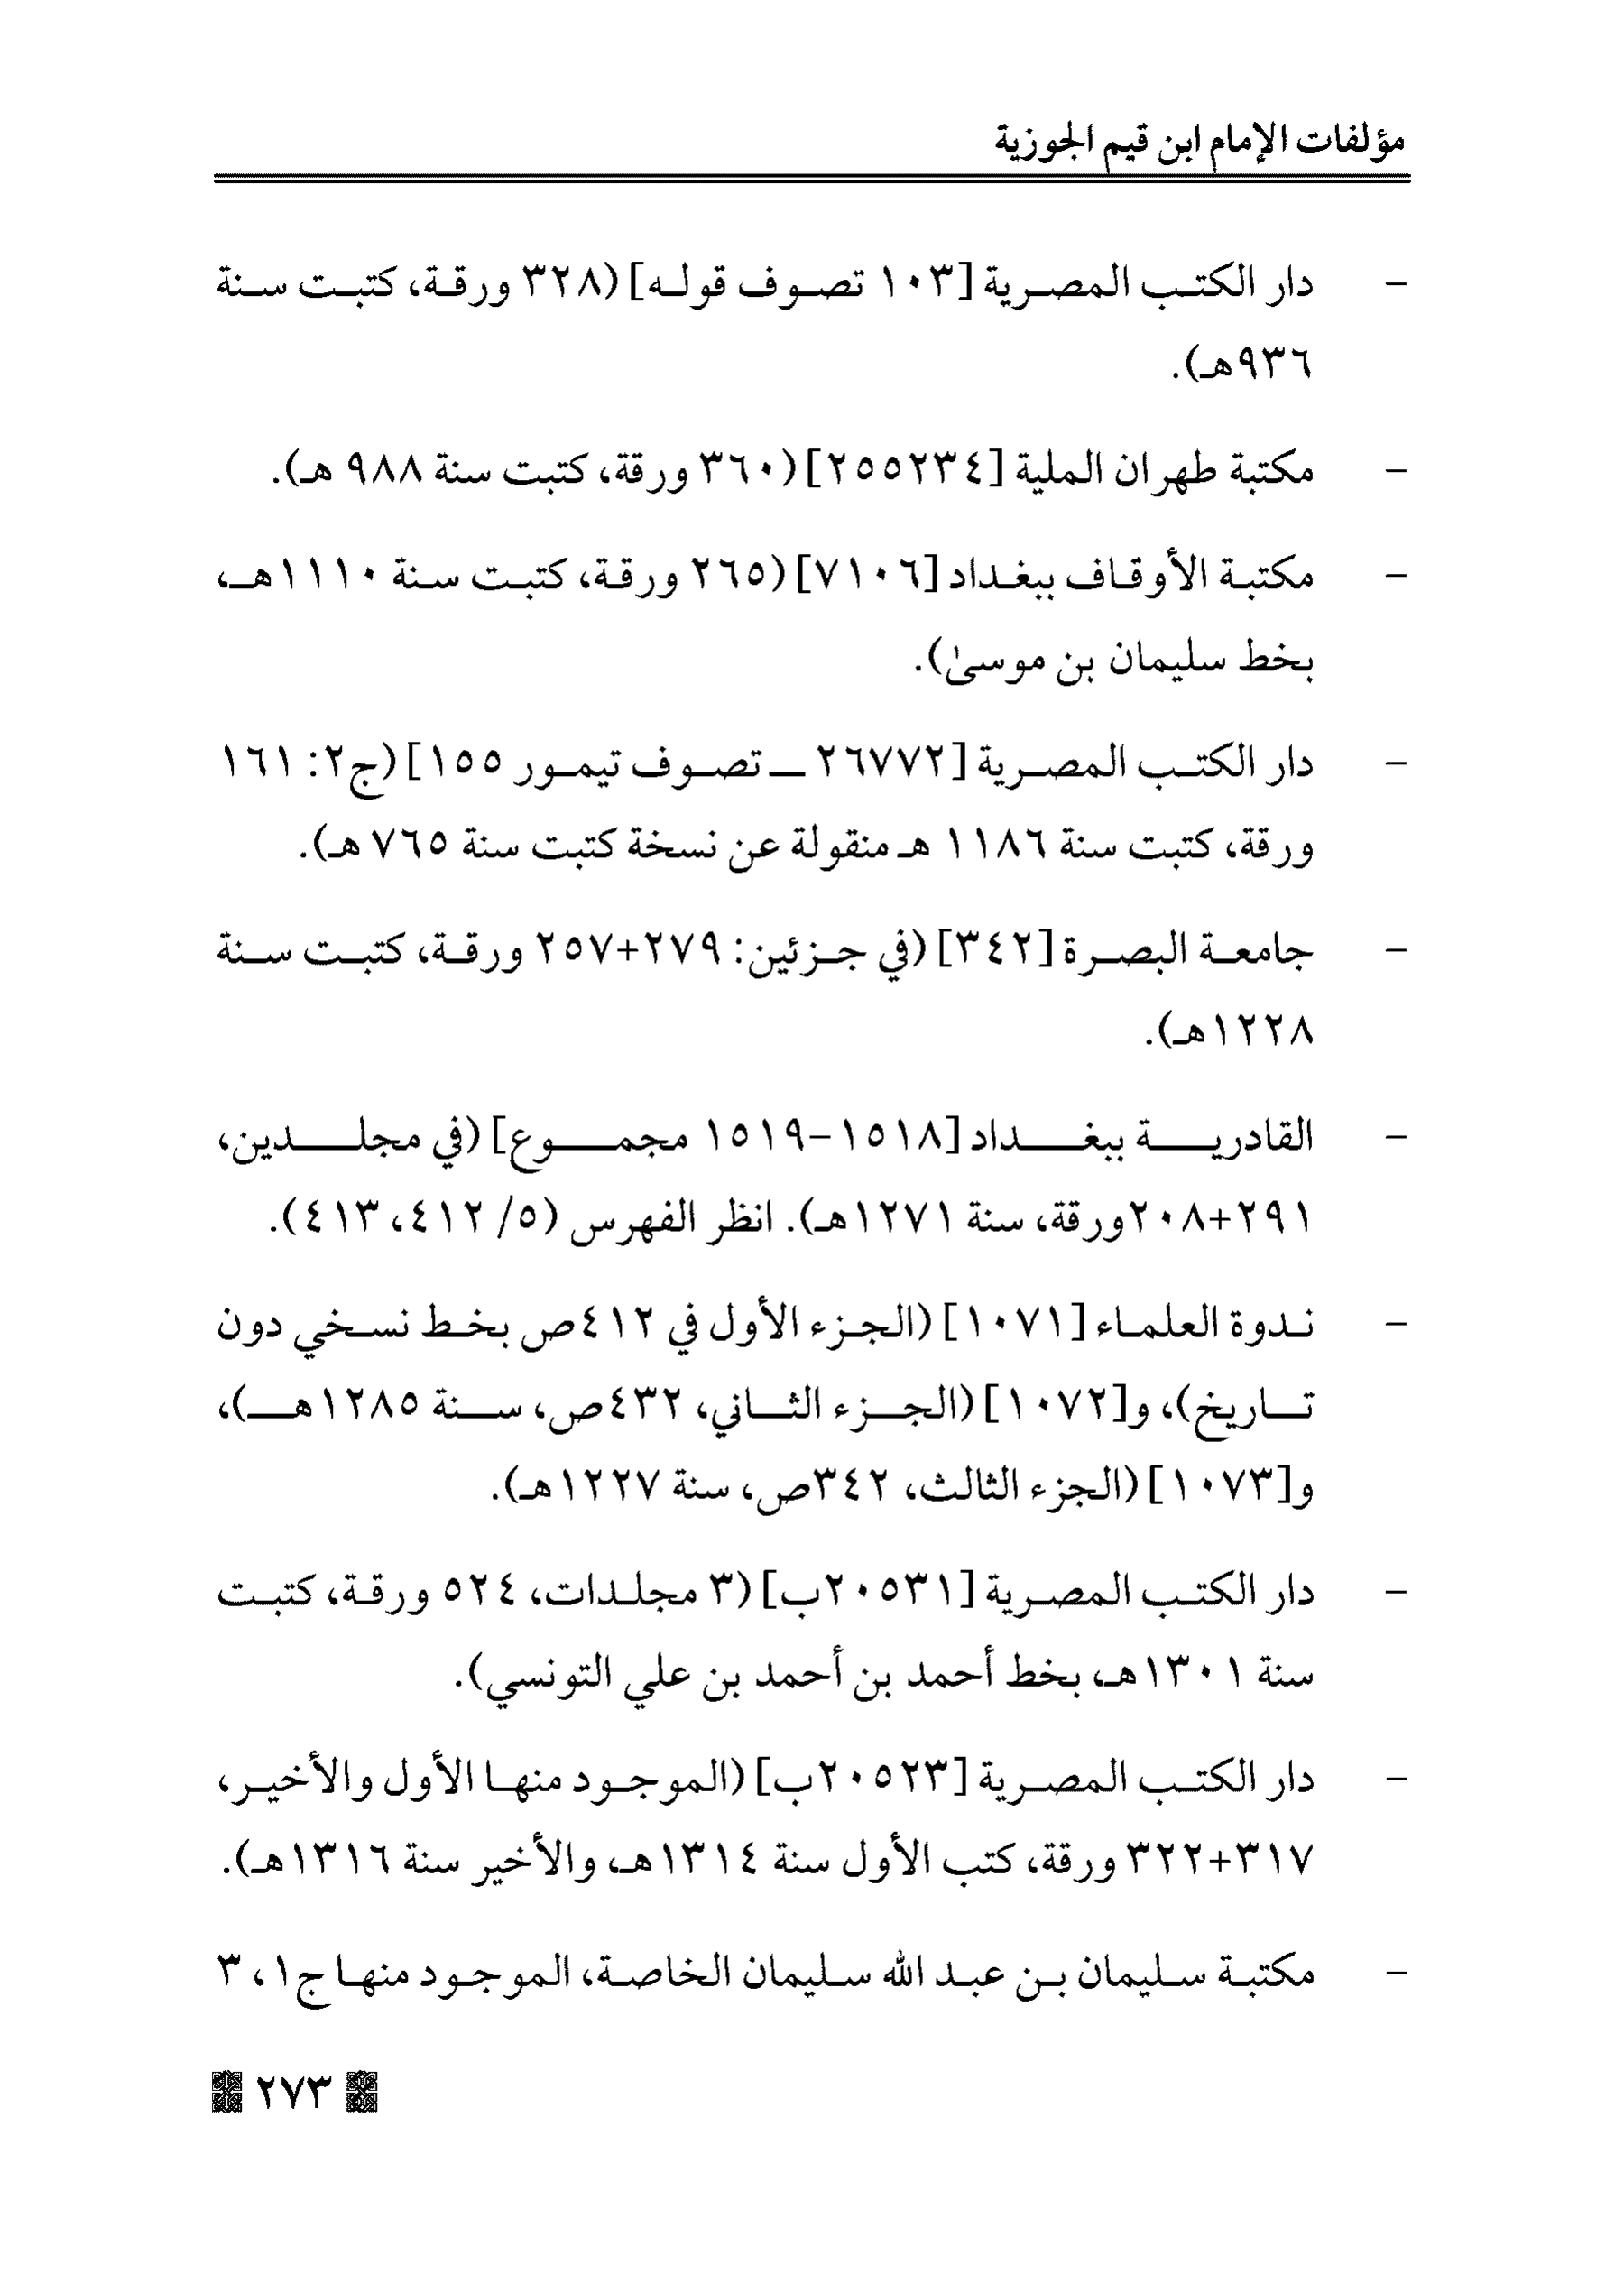 مؤلفات الإمام ابن قيم الجوزية
- دار الكتب المصرية [١٠٣ تصوف قوله] (٣٢٨ ورقة، كتبت سنة
٩٣٦هـ).
- مكتبة طهران الملية [٢٥٥٢٣٤] (٣٦٠ ورقة، كتبت سنة ٩٨٨ هـ).
- مكتبة الأوقاف ببغداد [٧١٠٦] (٢٦٥ ورقة، كتبت سنة ١١١٠هـ،
بخط سليمان بن موسىٰ).
- دار الكتب المصرية [٢٦٧٧٢ ـ تصوف تيمور ١٥٥] (ج٢: ١٦١
ورقة، كتبت سنة ١١٨٦ هـ منقولة عن نسخة كتبت سنة ٧٦٥ هـ).
- جامعة البصرة [٣٤٢] (في جزئين: ٢٧٩+٢٥٧ ورقة، كتبت سنة
١٢٢٨هـ).
- القادرية ببغداد [١٥١٨-١٥١٩ مجموع] (في مجلدين،
٢٩١+٢٠٨ورقة، سنة ١٢٧١هـ). انظر الفهرس (٥/ ٤١٢، ٤١٣).
- ندوة العلماء [١٠٧١] (الجزء الأول في ٤١٢ص بخط نسخي دون
تاريخ)، و[١٠٧٢] (الجزء الثاني، ٤٣٢ص، سنة ١٢٨٥هـ)،
و[١٠٧٣] (الجزء الثالث، ٣٤٢ص، سنة ١٢٢٧هـ).
- دار الكتب المصرية [٢٠٥٣١ب] (٣ مجلدات، ٥٢٤ ورقة، كتبت
سنة ١٣٠١هـ، بخط أحمد بن أحمد بن علي التونسي).
- دار الكتب المصرية [٢٠٥٢٣ب] (الموجود منها الأول والأخير،
٣١٧+٣٢٢ ورقة، كتب الأول سنة ١٣١٤هـ، والأخير سنة ١٣١٦هـ).
- مكتبة سليمان بن عبد الله سليمان الخاصة، الموجود منها ج١، ٣
٢٧٣